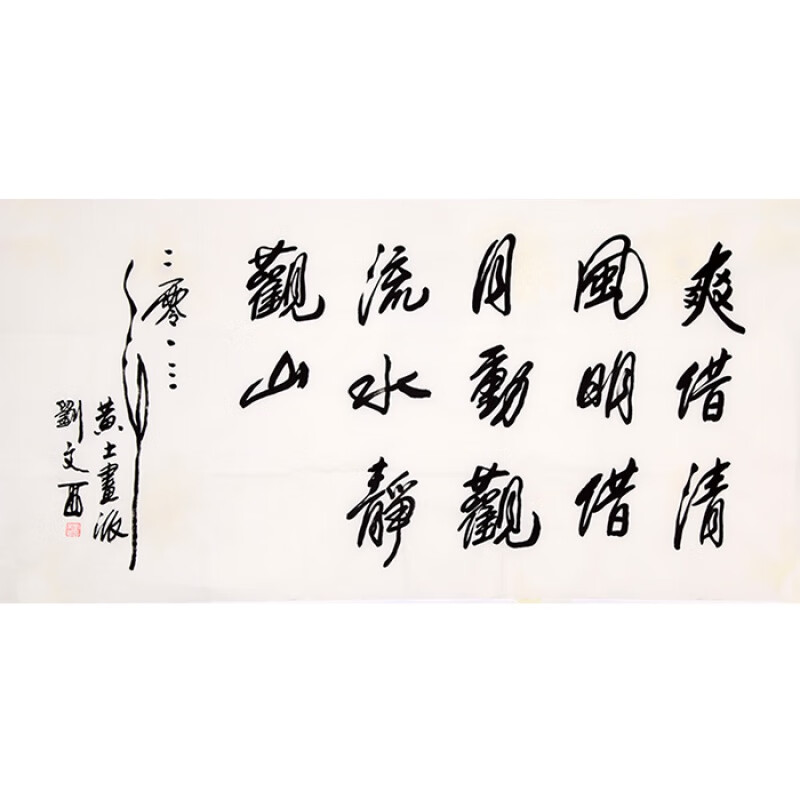 爽借清
風明借
月動觀
流水靜
觀山
二零一三
年
黄土畫派
劉文西